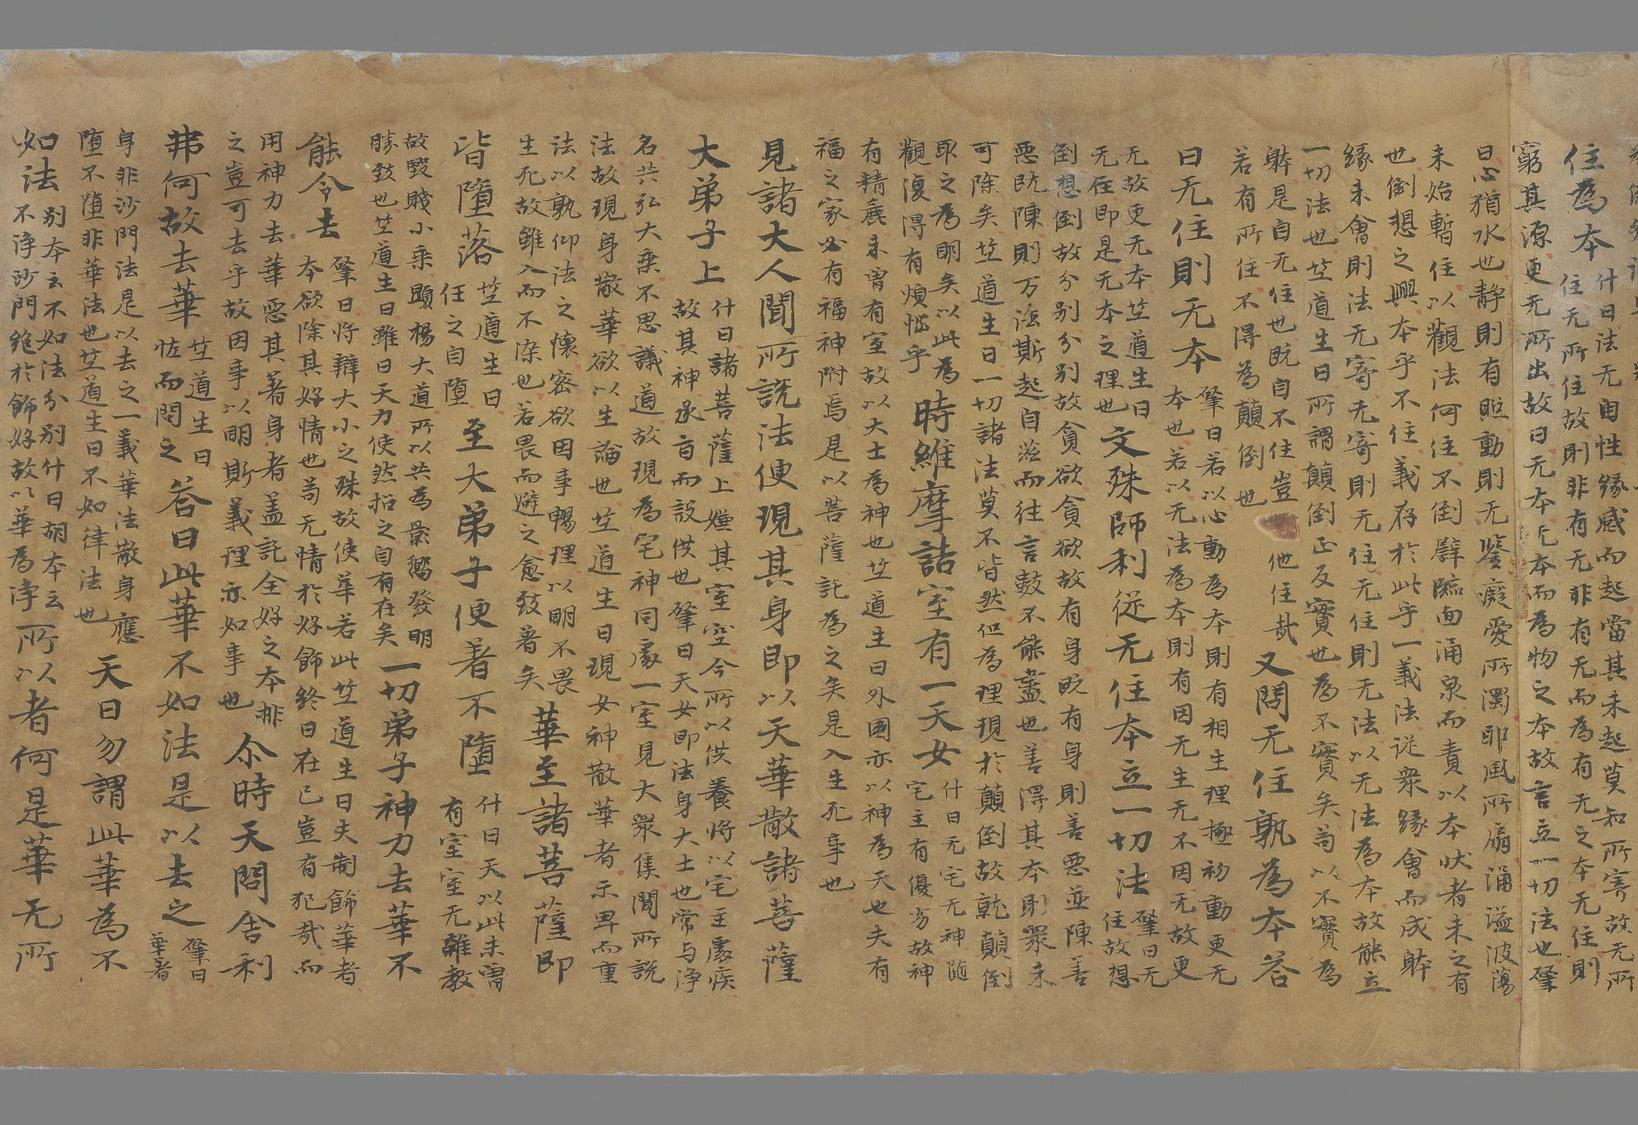 住為本
什曰法无自性緣感而起當其未起莫知所寄莫知所寄故无所
住无所住故則非有无非有无而為有无之本无住則
窮其源更无所出故曰无本无本而為物之本故言立一切法也肇
曰心猶水也靜則有照動則无鑒癡愛所濁邪風所扇涌溢波蕩
未始暫住以觀法何往不倒譬臨面涌泉而責以本狀者未之有
也倒想之興本乎不住義存於此乎一義法從眾緣會而成躰
緣未會則法无寄无寄則无住无住則无法以无法為本故能立
一切法也竺道生曰所謂顛倒正反實也為不實矣苟以不實為
躰是自无住也既自不住豈他住哉
若有所住不得為顛倒也
又問无住孰為本荅
曰无住則无本
肇曰若以心動為本則有相生理極初動更无
本也若以无法為本則有因无生无不因无故更
无故更无本竺道生曰
无住即是无本之理也
文殊師利從无住本立一切法
肇曰无
住故想
倒想倒故分別分別故貪欲貪欲故有身既有身則善惡並陳善
惡既陳則万法斯起自茲而往言數不能盡也善得其本則眾未
可除矣竺道生曰一切諸法莫不皆然但為理現於顛倒故就顛倒
取之為明矣以此為
觀復得有煩惱乎
時維摩詰室有一天女
什曰无宅无神隨
宅主有優劣故神
有精麁未曾有室故以大士為神也竺道生曰外國亦以神為天也夫有
福之家必有福神附焉是以菩薩託為之矣是入生死事也
見諸大人聞所說法便現其身即以天華散諸菩薩
大弟子上
什曰諸菩薩上嫌其室空今所以供養將以宅主處疾
故其神承旨而設供也肇曰天女即法身大士也常与淨
名共弘大乘不思議道故現為宅神同處一室見大眾集聞所說
法故現身散華欲以生論也竺道生曰現女神散華者示卑而重
法以孰仰法之懷密欲因事暢理以明不畏
生死故雖入而不染也若畏而避之愈致著矣
華至諸菩薩即
皆墮落
竺道生曰
任之自墮
至大弟子便著不墮
什曰天以此未曾
有室室无雜教
故毀賤小乘顯揚大道所以共為影嚮發明
勝致也竺道生曰雖曰天力使然招之自有在矣
一切弟子神力去華不
能令去
肇曰將辯大小之殊故使華若此竺道生曰夫制飾華者
本欲除其好情也苟无情於好飾終日在己豈有犯哉而
用神力去華惡其著身者盖託全好之本非
之豈可去乎故因事以明斯義理亦如事也
尒時天問舍利
弗何故去華
竺道生曰
怪而問之
荅曰此華不如法是以去之
肇曰
華著
身非沙門法是以去之一義華法散身應
墮不墮非華法也竺道生曰不如律法也
天曰勿謂此華為不
如法
別本云不如法分別什曰胡本云
不淨沙門絕於飾好故以華為淨
所以者何是華无所